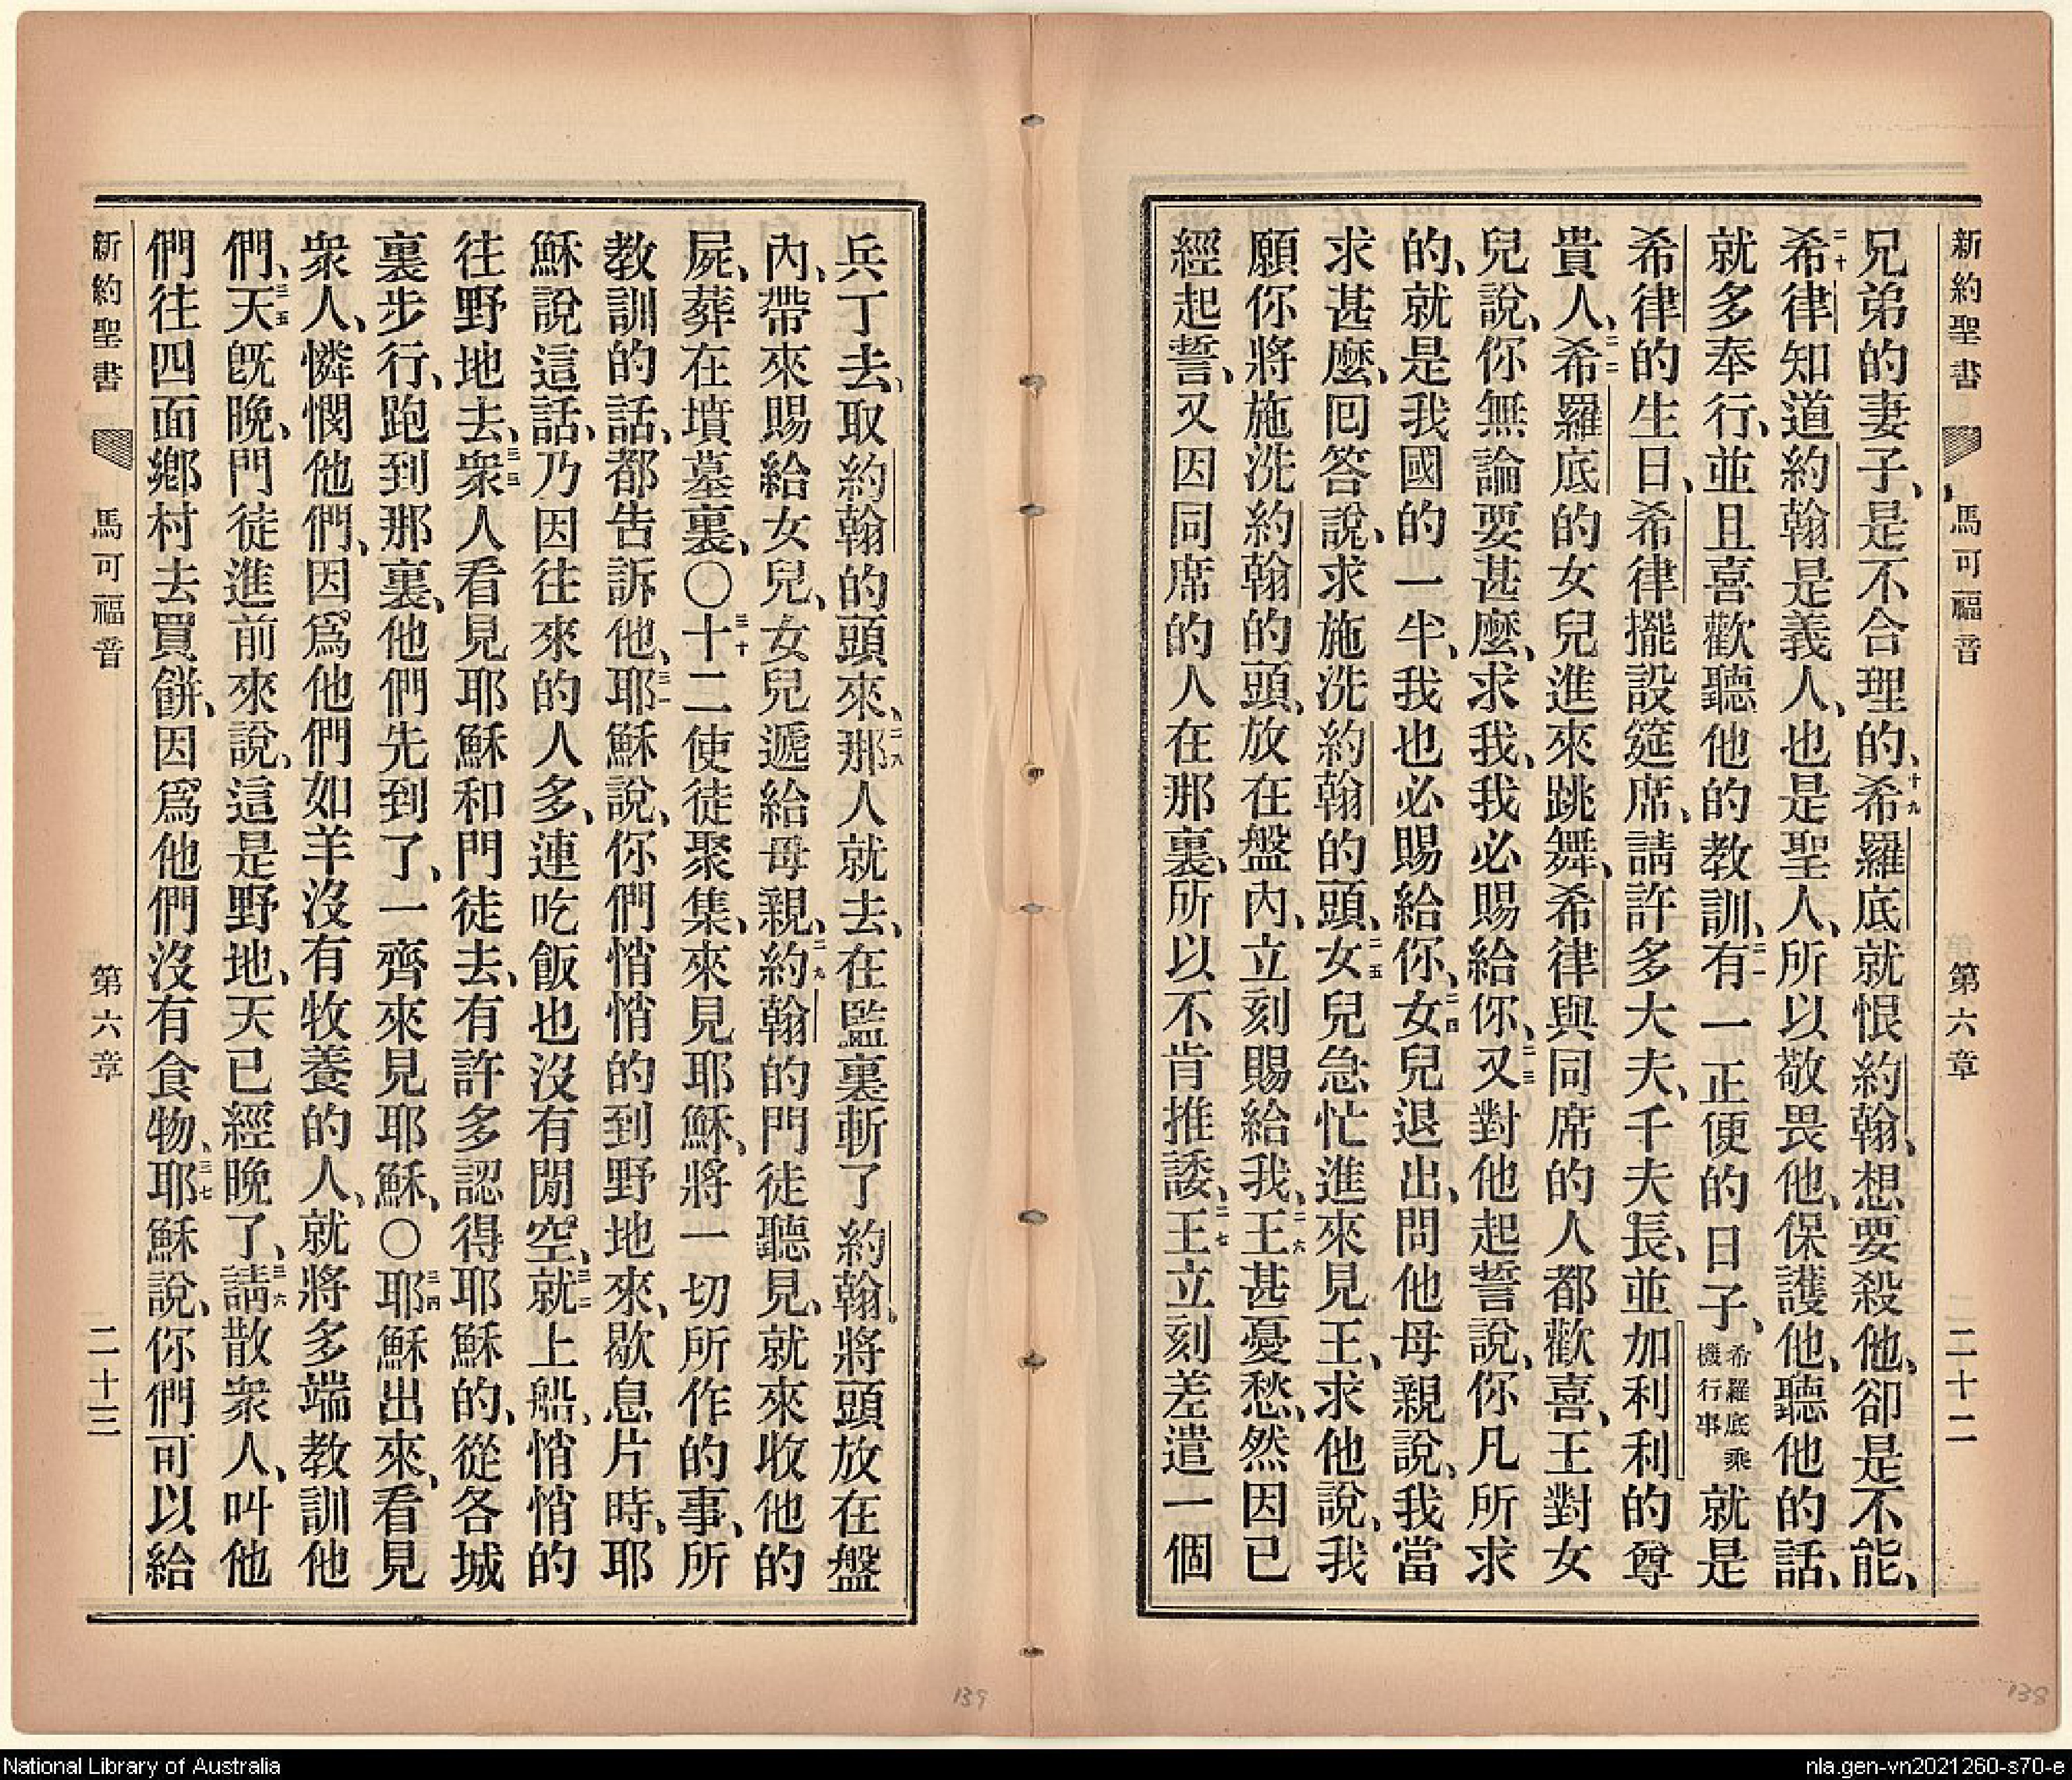 新約聖書 馬可福音 第六章 二十二
兄弟的妻子、是不合理的、十九希羅底就恨約翰、想要殺他、卻是不能、
二十希律知道約翰是義人、也是聖人、所以敬畏他、保護他、聽他的話、
就多奉行、並且喜歡聽他的教訓、二一有一正便的日子、希羅底乘機行事就是
希律的生日、希律擺設筵席、請許多大夫、千夫長、並加利利的尊
貴人、二二希羅底的女兒進來跳舞、希律與同席的人都歡喜、王對女
兒說、你無論要甚麼、求我、我必賜給你、二三又對他起誓說、你凡所求
的、就是我國的一半、我也必賜給你、二四女兒退出、問他母親說、我當
求甚麼、回答說、求施洗約翰的頭、二五女兒急忙進來見王、求他說、我
願你將施洗約翰的頭、放在盤內、立刻賜給我、二六王甚憂愁、然因已
經起誓、又因同席的人在那裏、所以不肯推諉、二七王立刻差遣一個
兵丁去、取約翰的頭來、二八那人就去、在監裏斬了約翰、將頭放在盤
內、帶來賜給女兒、女兒遞給母親、二九約翰的門徒聽見、就來收他的
屍、葬在墳墓裏、〇三十十二使徒聚集、來見耶穌、將一切所作的事、所
教訓的話、都告訴他、三一耶穌說、你們悄悄的到野地來、歇息片時、耶
穌說這話、乃因往來的人多、連吃飯也沒有閒空、三二就上船、悄悄的
往野地去、三三衆人看見耶穌和門徒去、有許多認得耶穌的、從各城
裏步行、跑到那裏、他們先到了、一齊來見耶穌、〇三四耶穌出來、看見
衆人、憐憫他們、因爲他們如羊沒有牧養的人、就將多端教訓他
們、三五天旣晚、門徒進前來說、這是野地、天已經晚了、三六請散衆人、叫他
們往四面鄉村去買餅、因爲他們沒有食物、三七耶穌說、你們可以給
新約聖書 馬可福音 第六章 二十三
139
138
National Library of Australia
nla.gen-vn2021260-s70-e